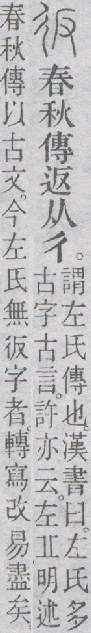 𢓉春秋傳返从彳。
謂左氏傳也。漢書曰。左氏多
古字古言。許亦云。左丘明述
春秋傳以古文。今左氏無𢓉字者。轉寫改易盡矣。